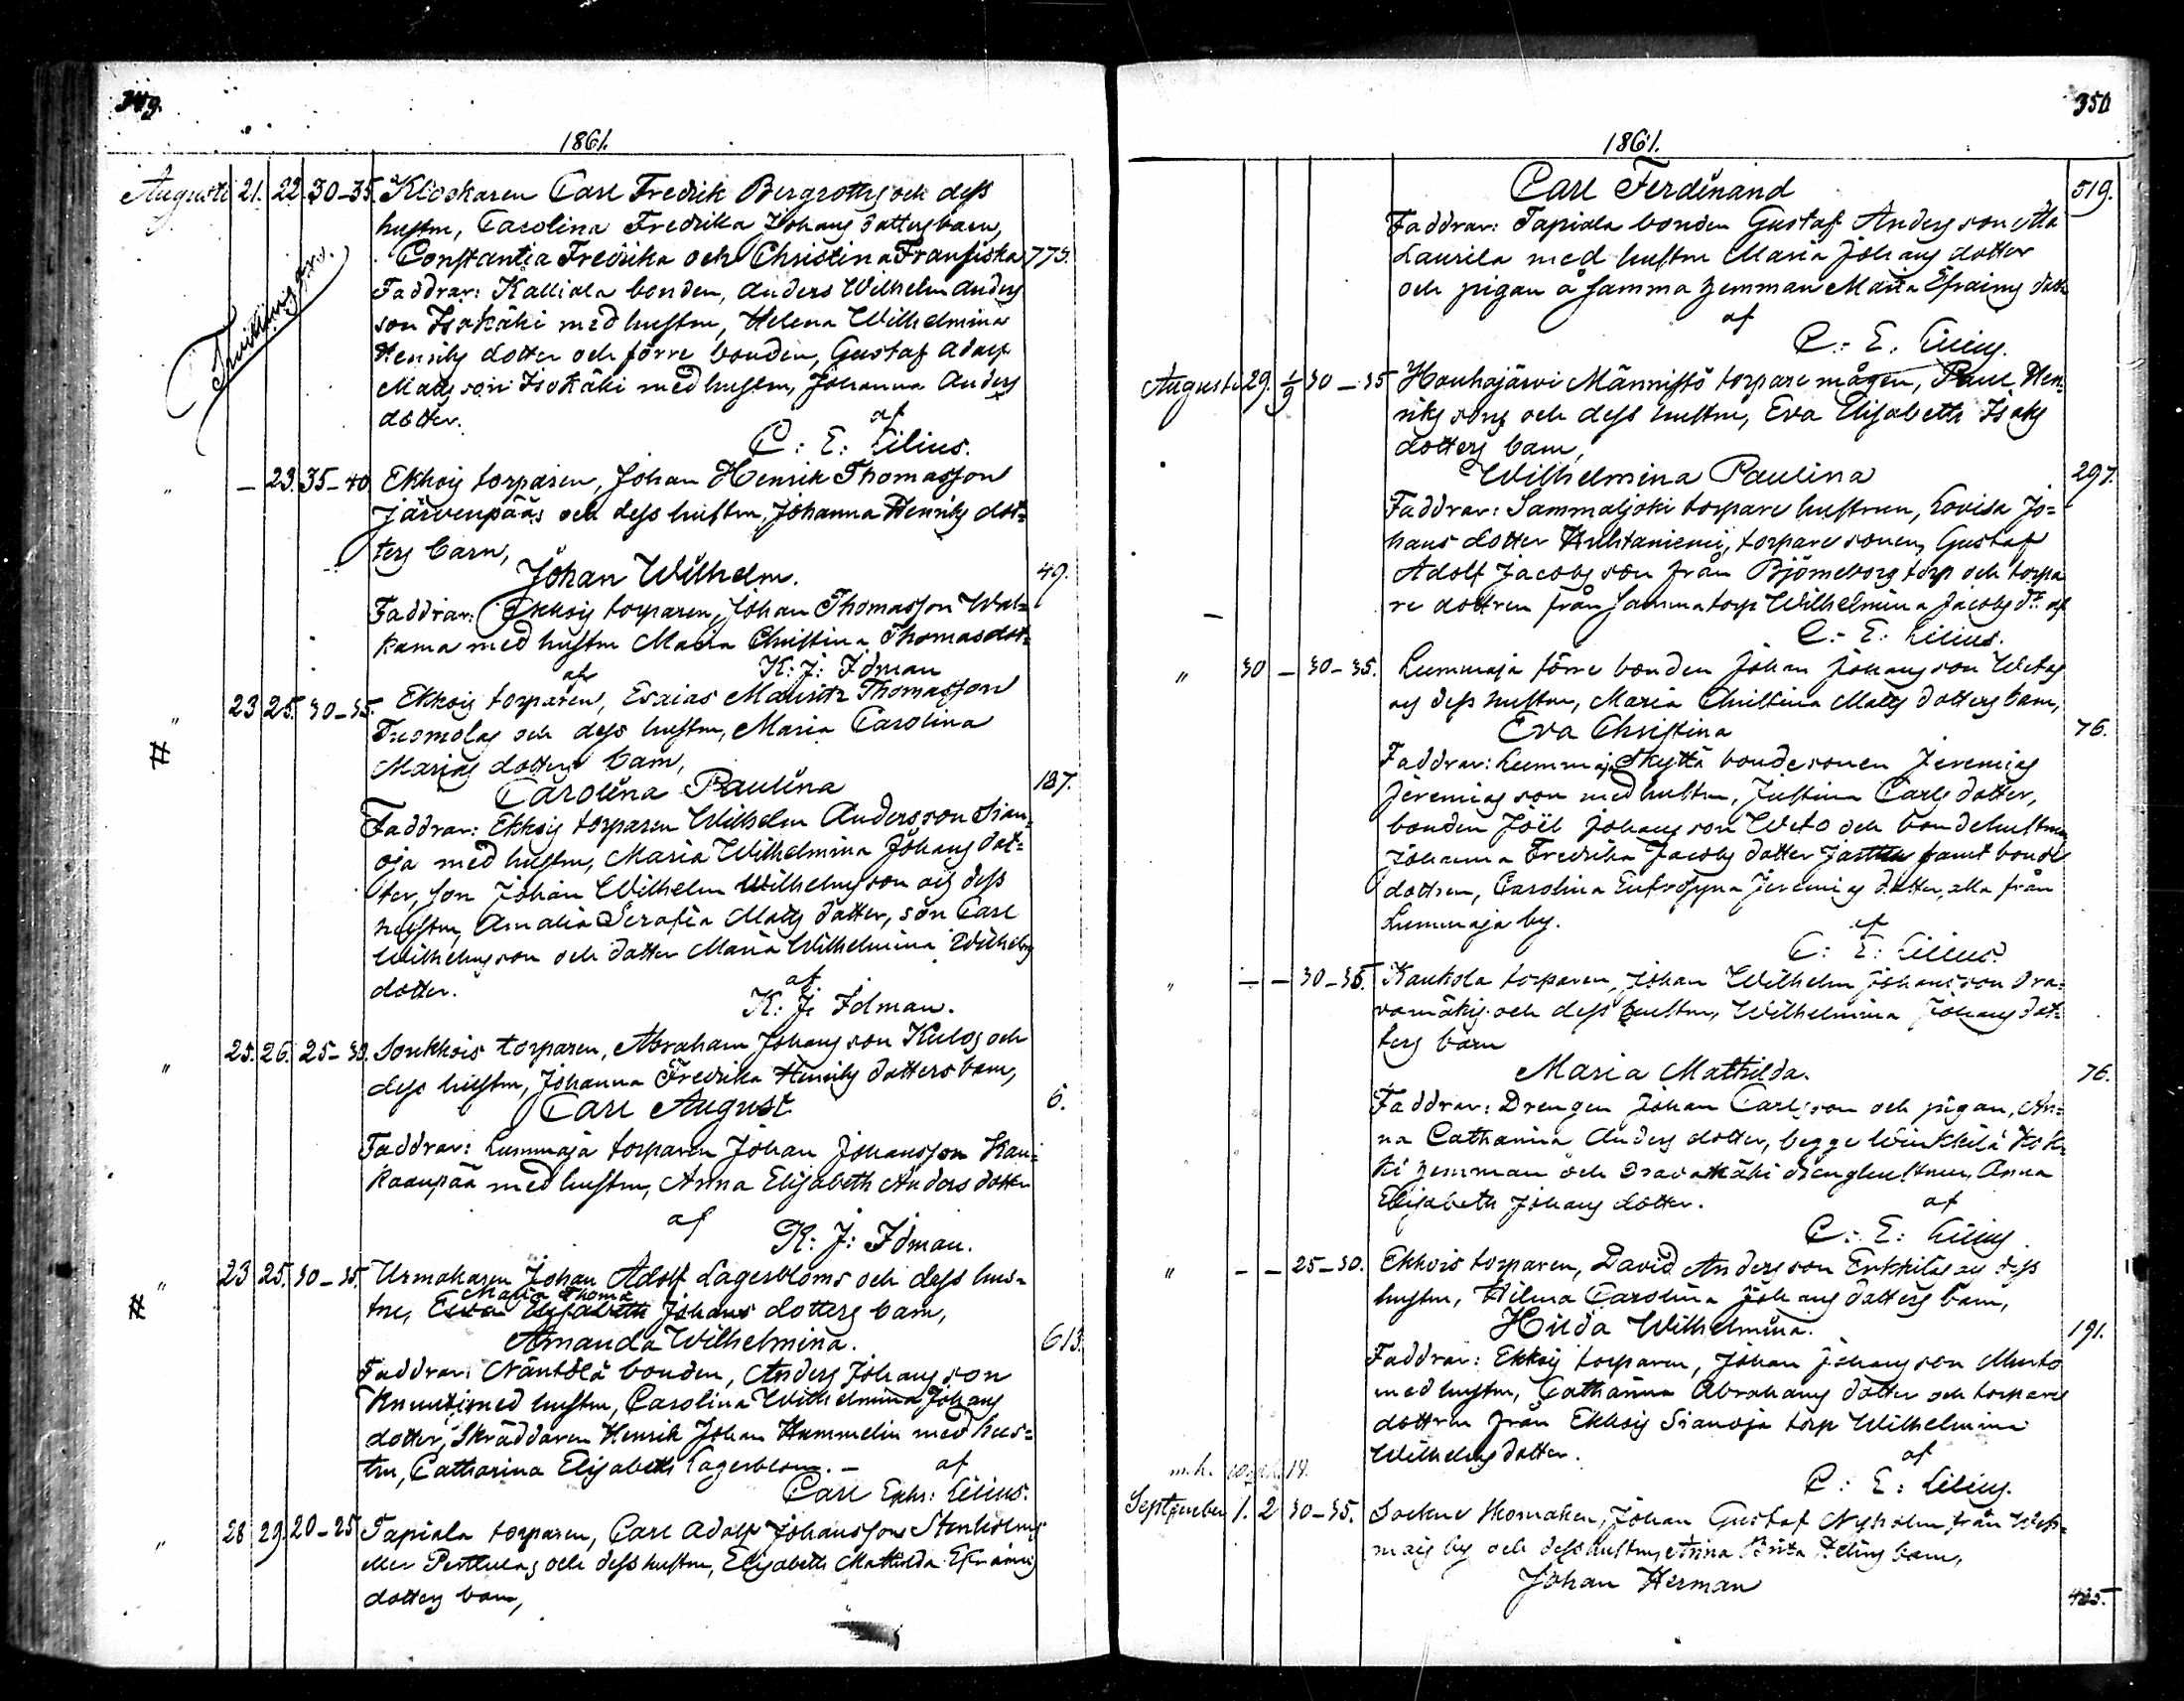 349.
1861.
Augusti 21. 22. 30-35. Klockaren Carl Fredrik Bergroths och dess
hustru, Carolina Fredrika Johans dotters barn,
Constantia Fredrika och Christina Fransiska 773.
Tvillingar
Faddrar: Kalliala bonden, Anders Wilhelm Anders
son Isokäki med hustru, Helena Wilhelmina
Henriks dotter och förre bonden, Gustaf Adolf
Mats son Isokäki med hustru, Johanna Anders
dotter. af
C: E: Lilius.
" — 23. 35-40 Ekkois torparen, Johan Henrik Thomasson
Järvenpääs och dess hustru, Johanna Henriks dot=
ters barn,
Johan Wilhelm. 49.
Faddrar: Ekkois torparen, Johan Thomasson Wal=
kama med hustru Maria Christina Thomasdot=
af K: J: Idman
" 23 25. 30-35. Ekkois torparen, Esaias Mauritz Thomasson
Tuomolas och dess hustru, Maria Carolina
# Marias dotters barn,
Carolina Paulina 187.
Faddrar: Ekkois torparen Wilhelm Andersson Sian=
oja med hustru, Maria Wilhelmina Johans dot=
ter, son Johan Wilhelm Wilhelmsson och dess
hustru, Amalia Serafia Mats dotter, son Carl
Wilhelmsson och dotter Maria Wilhelmina Wilhelms
dotter. af
K: J: Idman.
" 25. 26. 25-30. Sorkkois torparen, Abraham Johansson Kulos och
dess hustru, Johanna Fredrika Henriks dotters barn,
Carl August 6.
Faddrar: Lummaja torparen Johan Johansson Kan=
kaanpää med hustru, Anna Elisabeth Anders dotter
af
K: J: Idman.
" 23 25. 30-35. Urmakaren Johan Adolf Lagerbloms och dess hus=
Maria Thoma
# tru, Eva Elisabeth Johans dotters barn,
Amanda Wilhelmina. 613.
Faddrar: Näntölä bonden, Anders Johansson
Knuuti med hustru, Carolina Wilhelmina Johans
dotter, Skräddaren Henrik Johan Hummelin med hus=
tru, Catharina Elisabeth Lagerblom. — af
Carl Eph: Lilius.
" 28 29. 20-25 Tapiala torparen, Carl Adolf Johansson Stenholms
eller Penttilas och dess hustru, Elisabeth Mathilda Efraims
dotters barn,
350
1861.
Carl Ferdinand 519.
Faddrar: Tapiala bonden Gustaf Andersson Ala
Laurila med hustru Maria Johans dotter
och pigan å samma hemman Maria Efraims dott
af
C: E: Lilius.
Augusti 29. 1/9 30-35 Houhajärvi Männistö torpare mågen, Paul Hen=
riks sons och dess hustru, Eva Elisabeth Isaks
dotters barn,
Wilhelmina Paulina 297.
Faddrar: Sammaljoki torpare hustrun, Lovisa Jo=
hans dotter Huhtaniemi, torpare sonen, Gustaf
Adolf Jacobs son från Björneborg torp och torpa
re dottren från samma torp Wilhelmina Jacobs dr. af
C: E: Lilius.
" 30 — 30-35. Lummaja förre bonden Johan Johansson Wetos
och dess hustru, Maria Christina Mats dotters barn,
Eva Christina 76.
Faddrar: Lummaja Skyttä bondesonen Jeremias
Jeremias son med hustru, Justina Carls dotter,
bonden Joël Johans son Weto och bondehustrun
Johanna Fredrika Jacobs dotter samt bonde
dottren, Carolina Eufrosyna Jeremias dotter, alla från
Lummaja by. af
C: E: Lilius.
" — — 30-35. Kaukola torparen, Johan Wilhelm Johansson Ora=
vamäkis och dess hustru, Wilhelmina Johans dot=
ters barn
Maria Mathilda. 76.
Faddrar: Drengen Johan Carlsson och pigan, An=
na Catharina Anders dotter, begge Winkkilä Kok=
ki hemman och Oravamäki drenghustrun, Anna
Elisabeth Johans dotter. af
C: E: Lilius
" — — 25-30. Ekkois torparen, David Andersson Erkkilas och dess
hustru, Wilma Carolina Johans dotters barn,
Hilda Wilhelmina. 191.
Faddrar: Ekkois torparen, Johan Johansson Musto
med hustru, Catharina Abrahams dotter och torpare
dottren från Ekkois Sianoja torp Wilhelmina
Wilhelms dotter. af
C: E: Lilius.
September 1. 2 30-35. Sockne skomakaren, Johan Gustaf Nyholm från
by och dess hustru, Anna Brita barn,
Johan Herman
425.